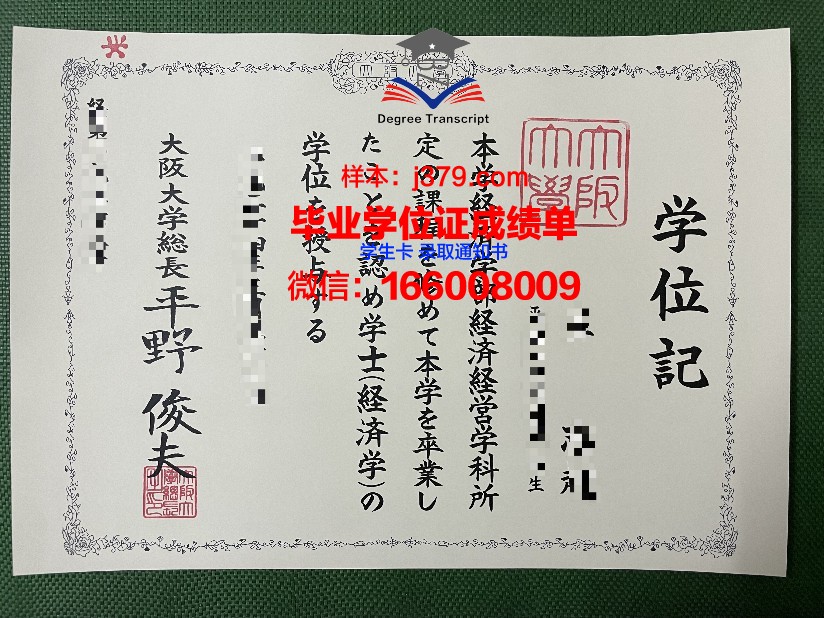 学位記
大阪大學
生
本学経済学部経済経営学科所
定の課程を修めて本学を卒業し
たことを認め学士(経済学)の
学位を授与する
大阪大学総長 平野 俊夫
Degree Transcript
样本：j879.com
毕业学位证成绩单
学生卡 录取通知书
微信：166008009